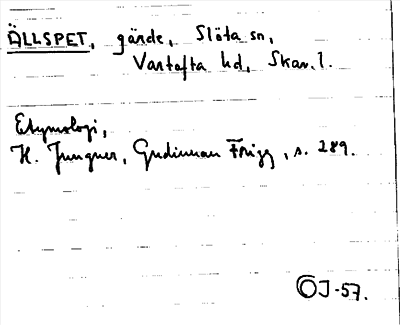 ÄLLSPET, gärde, Slöta sn,
Vartofta hd, Skar. l.
Etymologi,
H. Jungner, Gudinnan Frigg, s. 289.
OJ-57.